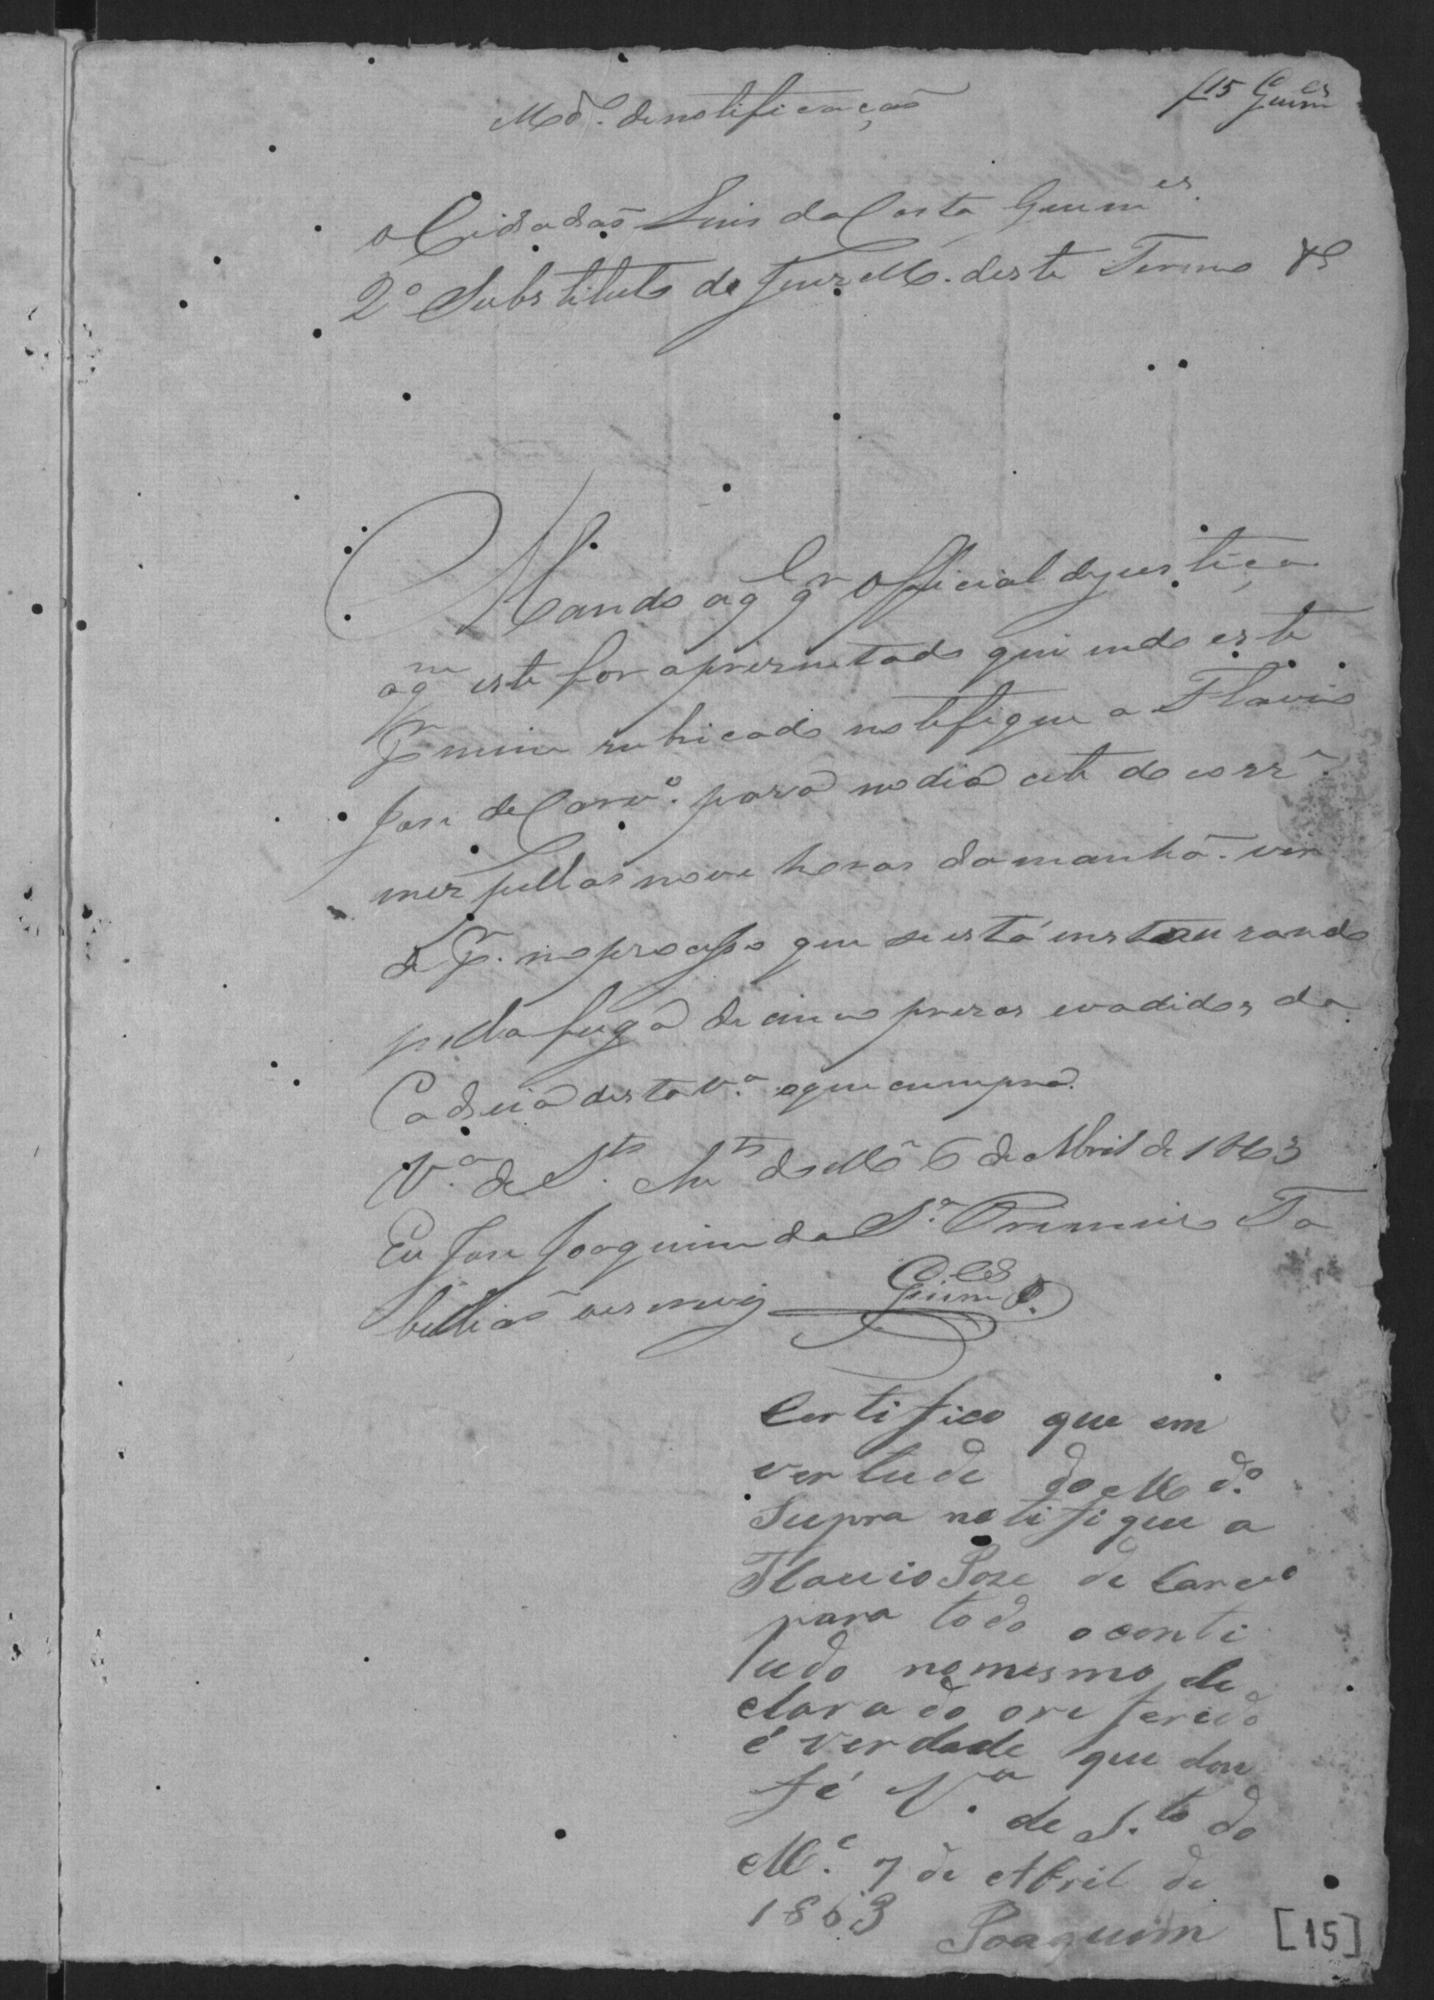 f 15 Guim.es
Md.º de notificação
o Cidadaõ Luis da Costa Guim.es
2º Substituto do Juiz M. deste Termo &
Mando a q.q.r Official de justiça
a q.m este for apresentado que indo este
p.r mim rubricado notifique a Flavio
Jose de Carv.º para no dia cete do corr.e
mez pellas nove horas da manhã vir
d. p. no processo que se está instaurando
pella fuga de cinco prezos evadidos da
Cadeia desta V.ª o que cumpra.
V.ª de S.to An.to do M.e 6 de Abril de 1863
Eu Jose Joaquim da S.ª Primeiro Ta
belliaõ escrevy
Guim.es
Certifico que em
vertude do M.dº
Supra notifique a
Flavio Joze de Carvº
para todo o conti
udo no mesmo de
clarado o referido
é verdade que dou
fé V.ª de S.to do
M.e 7 de Abril de
1863 Joaquim
[15]